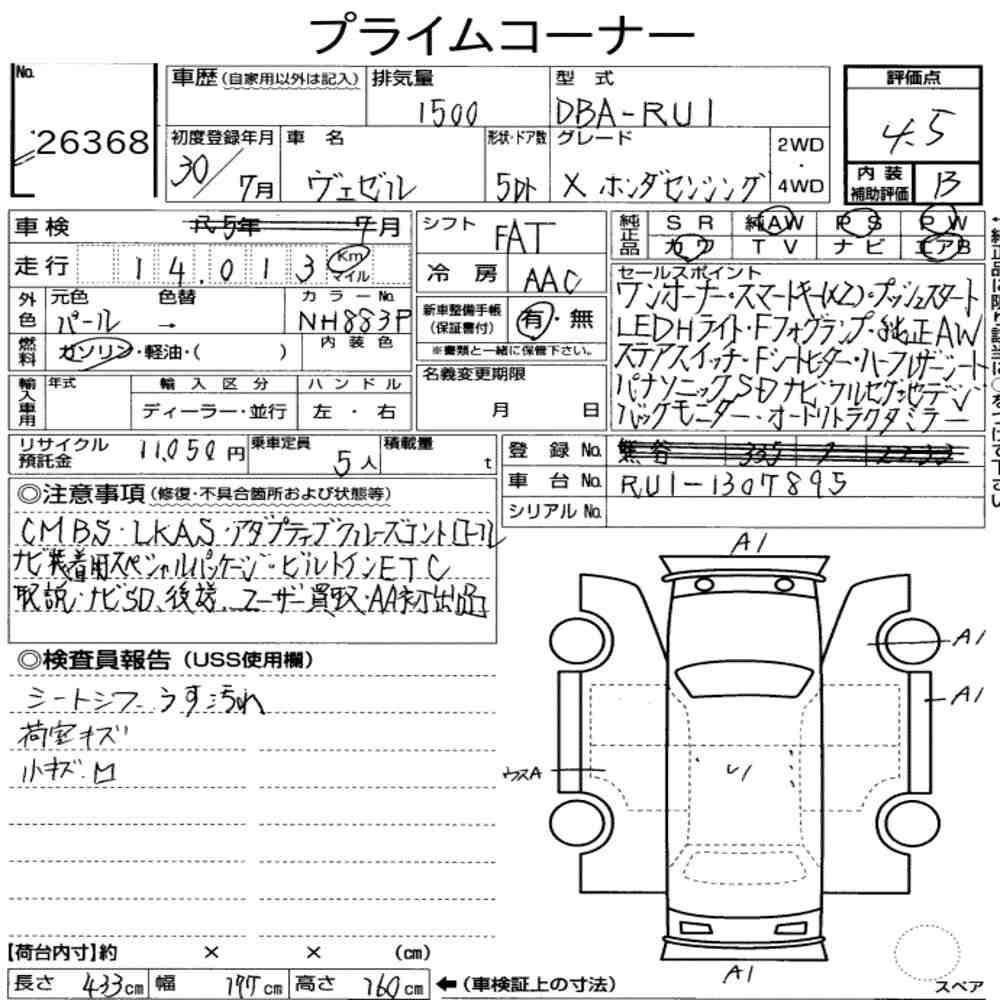 プライムコーナー
No. 26368
車歴(自家用以外は記入) 排気量 1500 型式 DBA-RU1
初度登録年月 30/7月 車名 ヴェゼル 形状・ドア数 5Dr グレード X ホンダセンシング 2WD・4WD
評価点 4.5
内装補助評価 B
車検 R5年 7月
走行 14.013 Km マイル
外色 元色 パール 色替 → カラーNo. NH883P
内装色
燃料 ガソリン・軽油・( )
輸入車用 年式 輸入区分 ディーラー・並行 ハンドル 左・右
シフト FAT
冷房 AAC
新車整備手帳(保証書付) 有・無
※書類と一緒に保管下さい。
名義変更期限 月 日
純正品 SR 純AW PS PW
カワ TV ナビ エアB
セールスポイント
ワンオーナー・スマートキー(x2)・プッシュスタート
LEDHライト・Fフォグランプ・純正AW
ステアスイッチ・Fシートヒーター・ハーフレザーシート
パナソニックSDナビ フルセグ・セデ
バックモニター・オートリトラクタミラー
リサイクル預託金 11,050円 乗車定員 5人 積載量 t
登録No. 熊谷 335
車台No. RU1-1307895
シリアルNo.
◎注意事項(修復・不具合箇所および状態等)
CMBS・LKAS・アダプティブクルーズコントロール
ナビ装着用スペシャルパッケージ・ビルトインETC
取説・ナビSD、後送、ユーザー買取・AA初出品
◎検査員報告(USS使用欄)
シートシワ うす汚れ
荷室キズ
小キズ.M
A1
A1
A1
ウスA
U1
A1
スペア
【荷台内寸】約 × × (cm)
長さ 433cm 幅 177cm 高さ 160cm ←(車検証上の寸法)